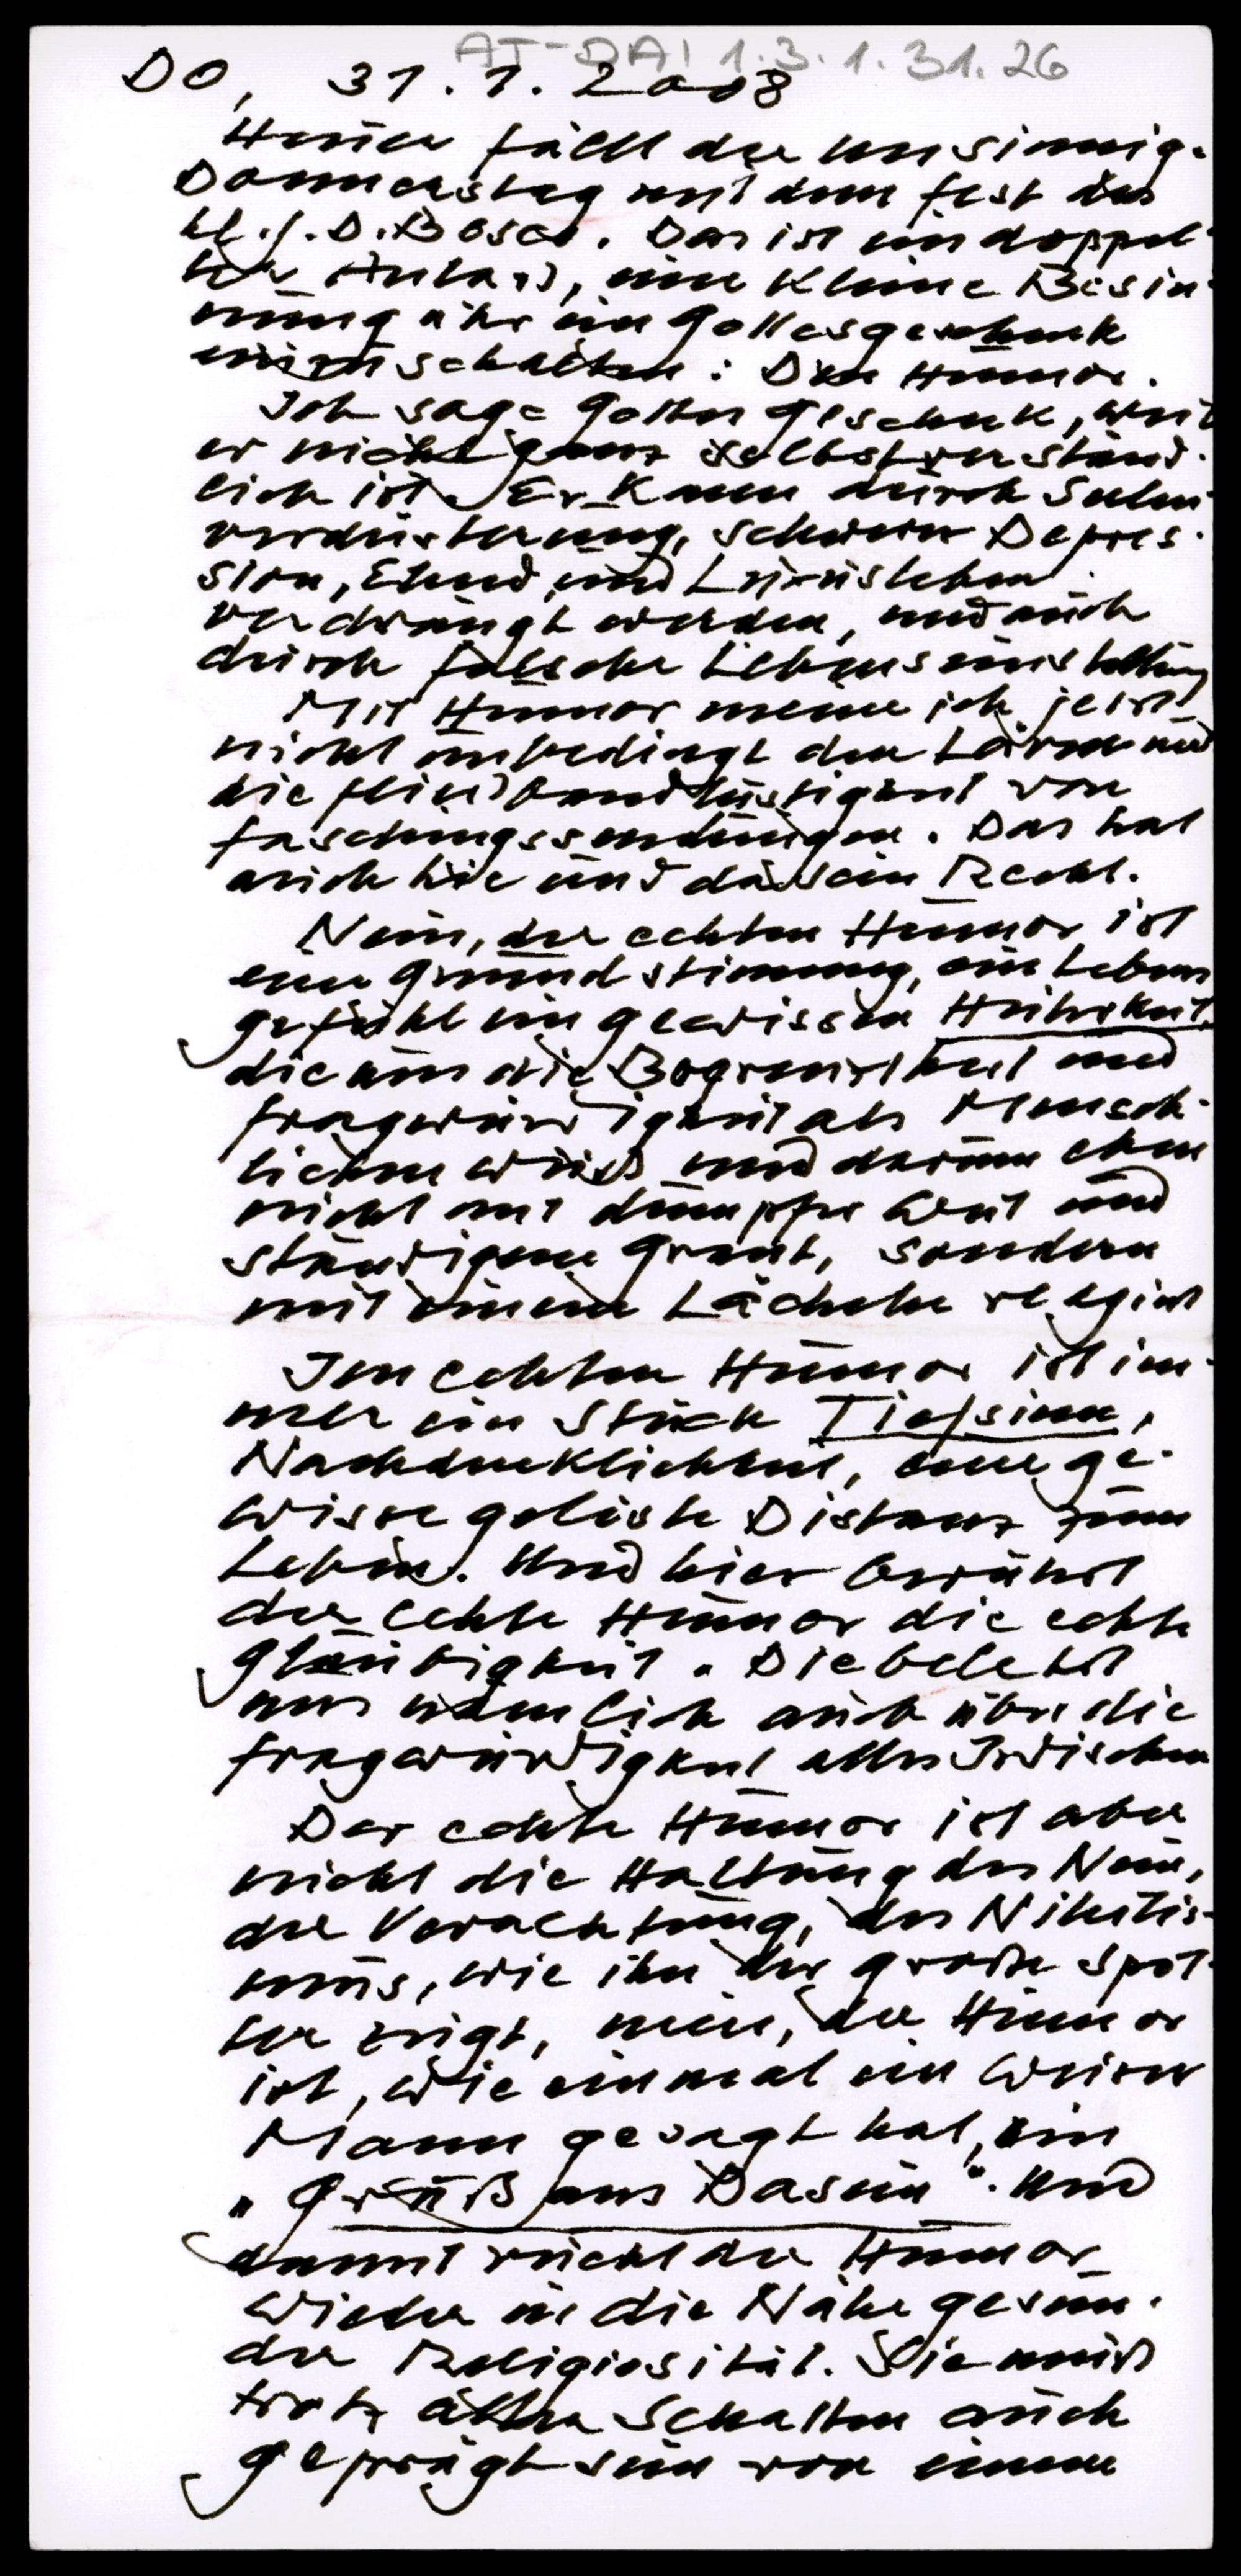 AT-DAI 1.3.1.31.26
DO, 31.1.2008
Heuer fällt der unsinnige
Donnerstag mit dem Fest des
hl. J. D. Bosco. Das ist ein doppel-
ter Anlass, eine kleine Besin-
nung über ein Gottesgeschenk
einzuschalten: Den Humor.
Ich sage Gottes Geschenk, weil
er nicht ganz selbstverständ-
lich ist. Er kann durch Seelen-
verdüsterung, schwere Depres-
sion, Elend, und Luxusleben
verdrängt werden, und auch
durch falsche Lebenseinstellung
Mit Humor meine ich jetzt
nicht unbedingt den Lärm und
die Fließbandlustigkeit von
Faschingssendungen. Das hat
auch hie und da sein Recht.
Nein, der echten Humor ist
eine Grundstimmung, ein Lebens
gefühl einer gewissen Heiterkeit,
die um die Begrenztheit und
Fragwürdigkeit alles Mensch-
lichen weiß und darum eben
nicht mit dumpfer Wut und
ständigem Grant, sondern
mit einem Lächeln reagiert
Im echten Humor ist im-
mer ein Stück Tiefsinn,
Nachdenklichkeit, eine ge-
wisse gelöste Distanz zum
Leben. Und hier berührt
der echte Humor die echte
Gläubigkeit. Die belehrt
uns nämlich auch über die
Fragwürdigkeit alles Irdischen
Der echte Humor ist aber
nicht die Haltung des Nein,
der Verachtung, des Nihilis-
mus, wie ihn der große Spöt-
ter zeigt, nein, der Humor
ist, wie einmal ein weiser
Mann gesagt hat, ein
"Gruß ans Dasein". Und
damit rückt der Humor
wieder in die Nähe gesun-
der Religiosität. Sie muß
trotz aller Schatten auch
geprägt sein von einem